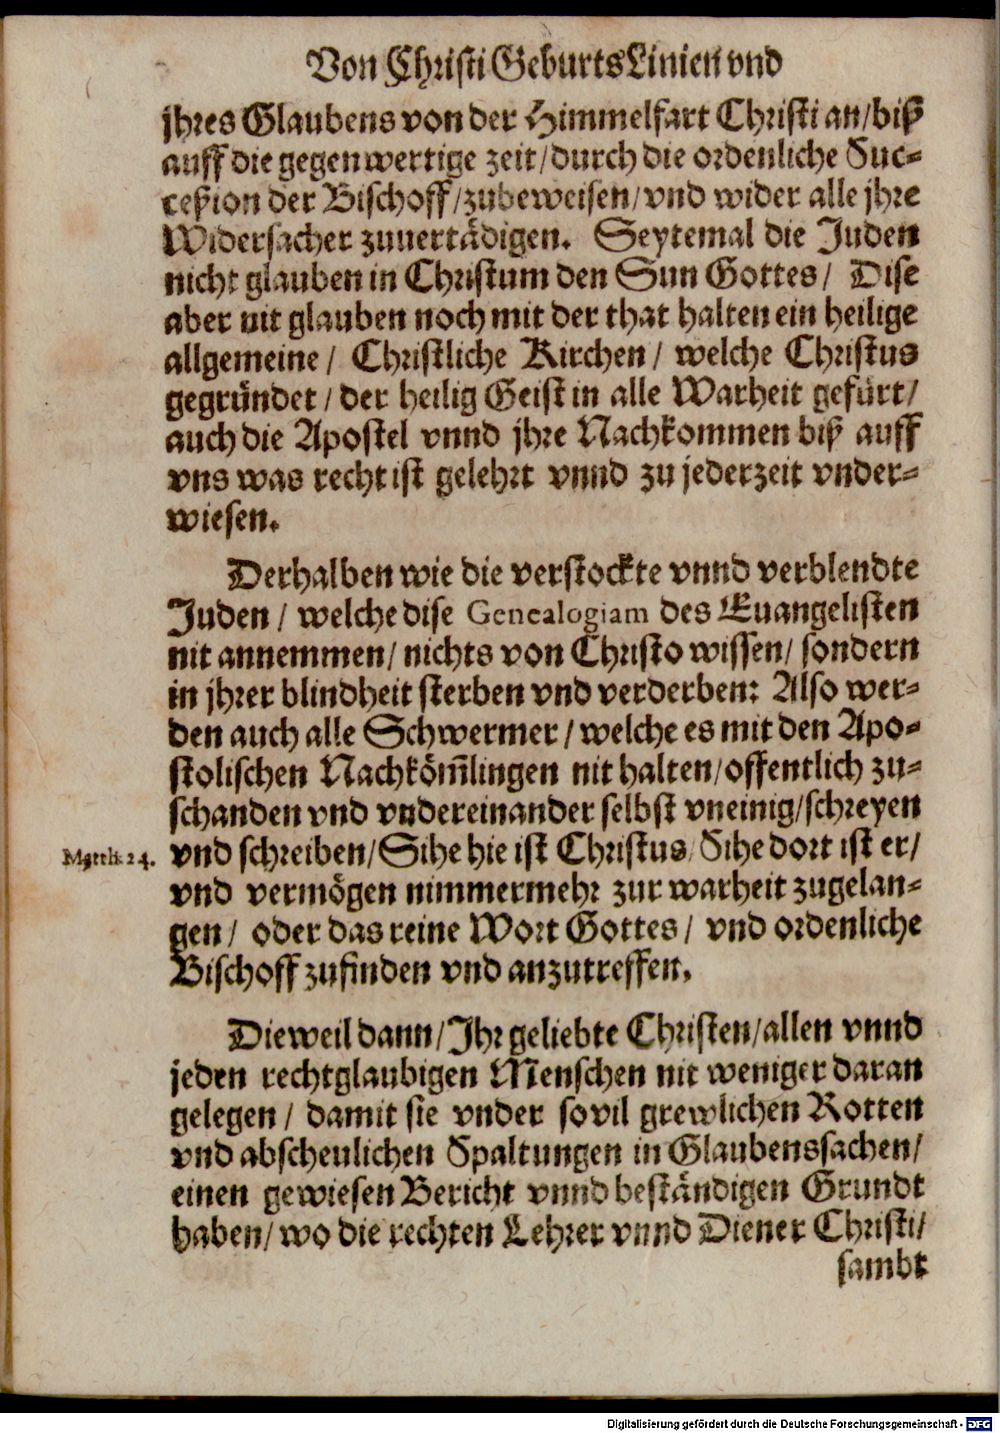 Von Christi Geburts Linien vnd
jhres Glaubens von der Himmelfart Christi an/biß
auff die gegenwertige zeit/durch die ordenliche Suc-
ceßion der Bischoff/zubeweisen/vnd wider alle jhre
Widersacher zuuertädigen. Seytemal die Juden
nicht glauben in Christum den Sun Gottes/ Dise
aber nit glauben noch mit der that halten ein heilige
allgemeine/ Christliche Kirchen/ welche Christus
gegründet/der heilig Geist in alle Warheit gefürt/
auch die Apostel vnnd jhre Nachkommen biß auff
vns was recht ist gelehrt vnnd zu jederzeit vnder-
wiesen.
Derhalben wie die verstockte vnnd verblendte
Juden/ welche dise Genealogiam des Euangelisten
nit annemmen/nichts von Christo wissen/ sondern
in jhrer blindheit sterben vnd verderben: Also wer-
den auch alle Schwermer/welche es mit den Apo-
stolischen Nachköm̃lingen nit halten/offentlich zu-
schanden vnd vndereinander selbst vneinig/schreyen
Matth. 24. vnd schreiben/Sihe hie ist Christus/Sihe dort ist er/
vnd vermögen nimmermehr zur warheit zugelan-
gen/ oder das reine Wort Gottes/ vnd ordenliche
Bischoff zufinden vnd anzutreffen.
Dieweil dann/Ihr geliebte Christen/allen vnnd
jeden rechtglaubigen Menschen nit weniger daran
gelegen/ damit sie vnder sovil grewlichen Rotten
vnd abscheulichen Spaltungen in Glaubenssachen/
einen gewiesen Bericht vnnd beständigen Grundt
haben/wo die rechten Lehrer vnnd Diener Christi/
sambt
Digitalisierung gefördert durch die Deutsche Forschungsgemeinschaft - DFG